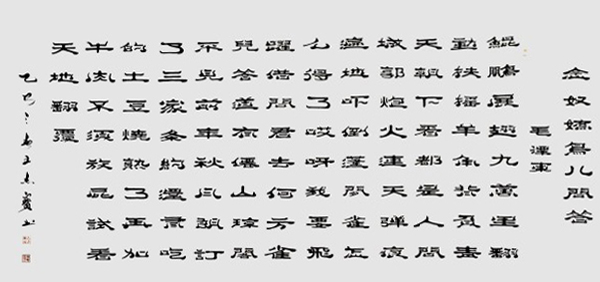 念奴嬌鳥儿問答
毛澤東
鯤鵬展翅九萬里翻
動扶搖羊角背負青
天朝下看都是人間
城郭炮火連天彈痕
遍地吓倒蓬間雀怎
么得了哎呀我要飛
躍借問君去何方雀
兒答道有僊山瓊閣
不見前年秋月朗訂
了三家條約還有吃
的土豆燒熟了再加
牛肉不須放屁試看
天地翻覆
乙巳之春王志